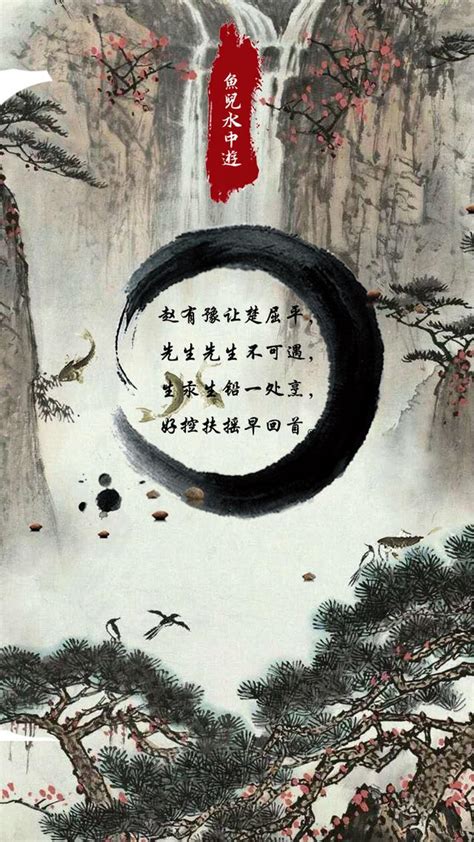 魚兒水中遊
赵有豫让楚屈平，
先生先生不可遇，
生汞生铅一处烹，
好控扶摇早回首。